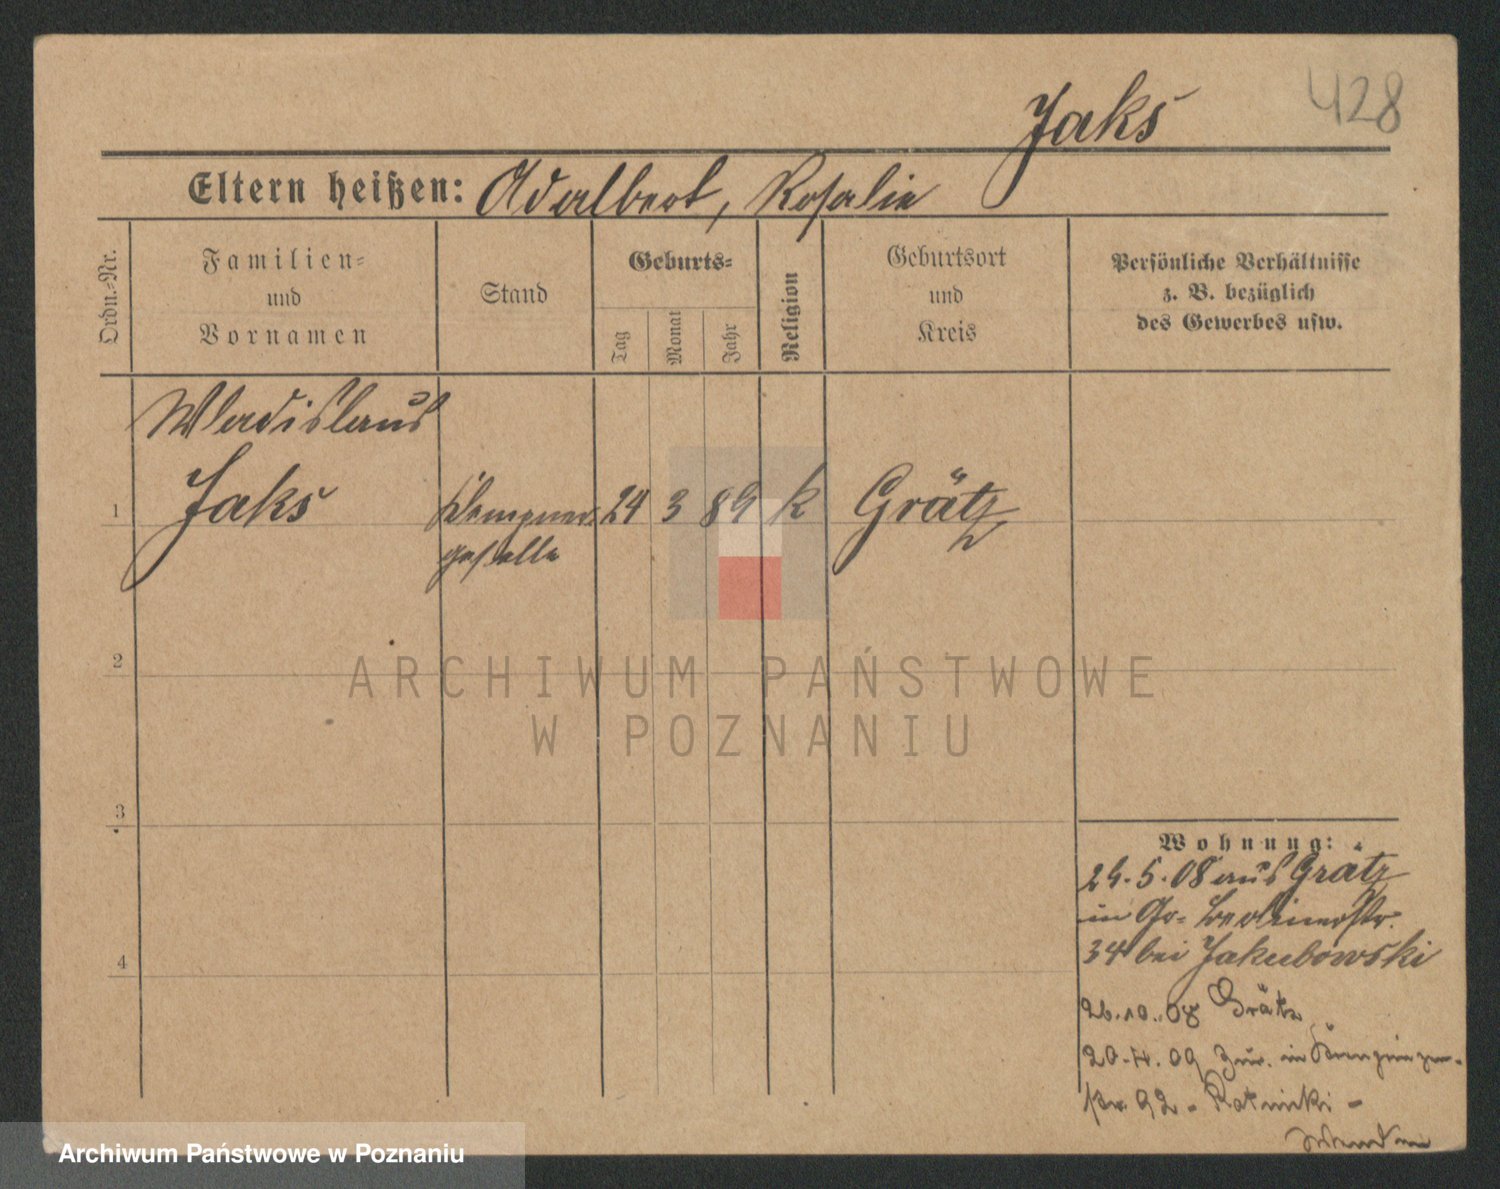 428
Jaks
Eltern heißen: Adalbert, Rosalie
Ordn.-Nr.
Familien-
und
Vornamen
Stand
Geburts-
Tag
Monat
Jahr
Religion
Geburtsort
und
Kreis
Persönliche Verhältnisse
z. B. bezüglich
des Gewerbes usw.
Wladislaus
1 Jaks Klempner 24 3 89 k Grätz
geselle
2
3
4
ARCHIWUM PAŃSTWOWE
W POZNANIU
Wohnung:
29.5.08 aus Gratz
in Gr. Berlinerstr.
34 bei Jakubowski
26.10.08 Grätz
20.4.09 zur. in
str. 92 - Ratnicki -
wenden
Archiwum Państwowe w Poznaniu